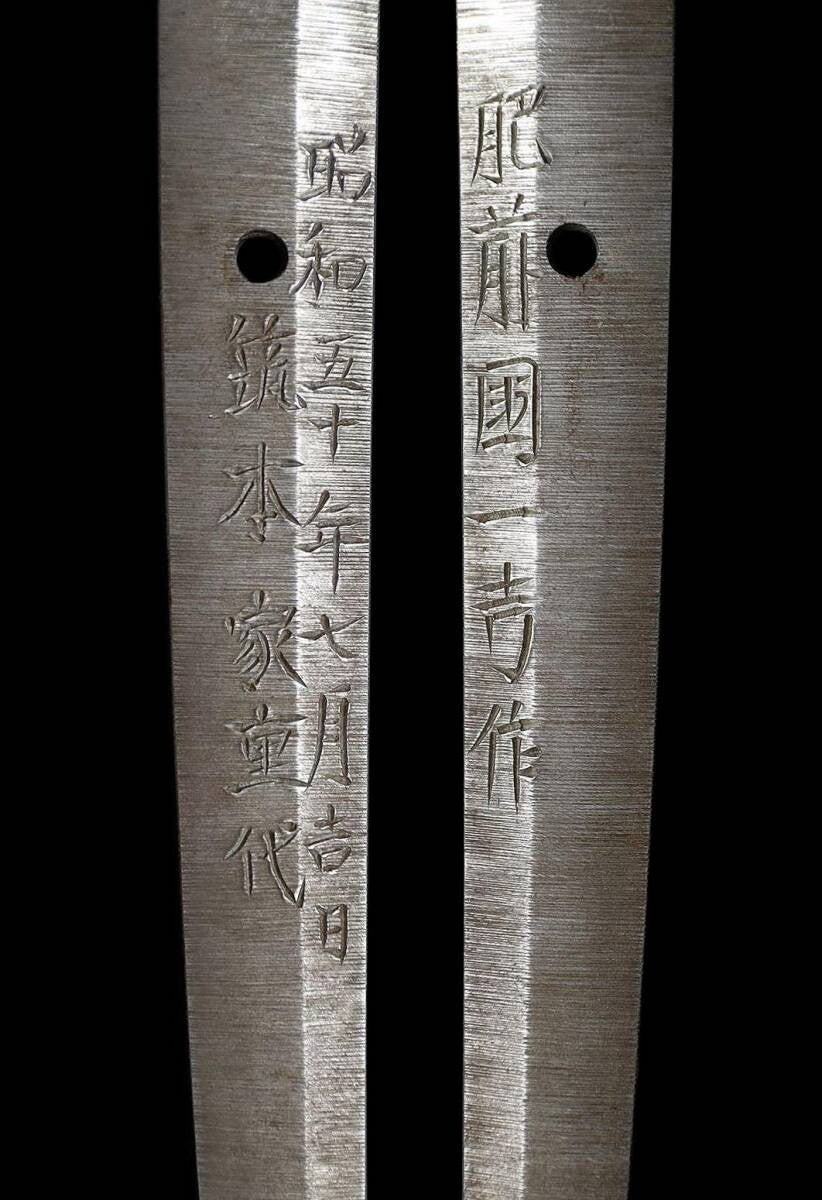 肥前國一吉作
昭和五十年七月吉日
筑本家重代